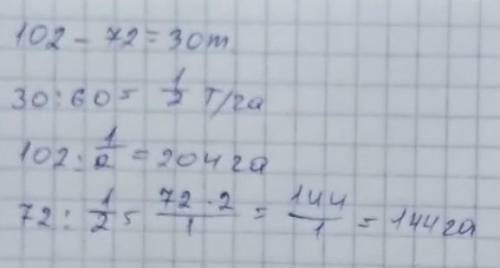 102 - 72 = 30т
30 : 60 = 1/2 т/га
102 : 1/2 = 204 га
72 : 1/2 = 72 · 2/1 = 144/1 = 144 га